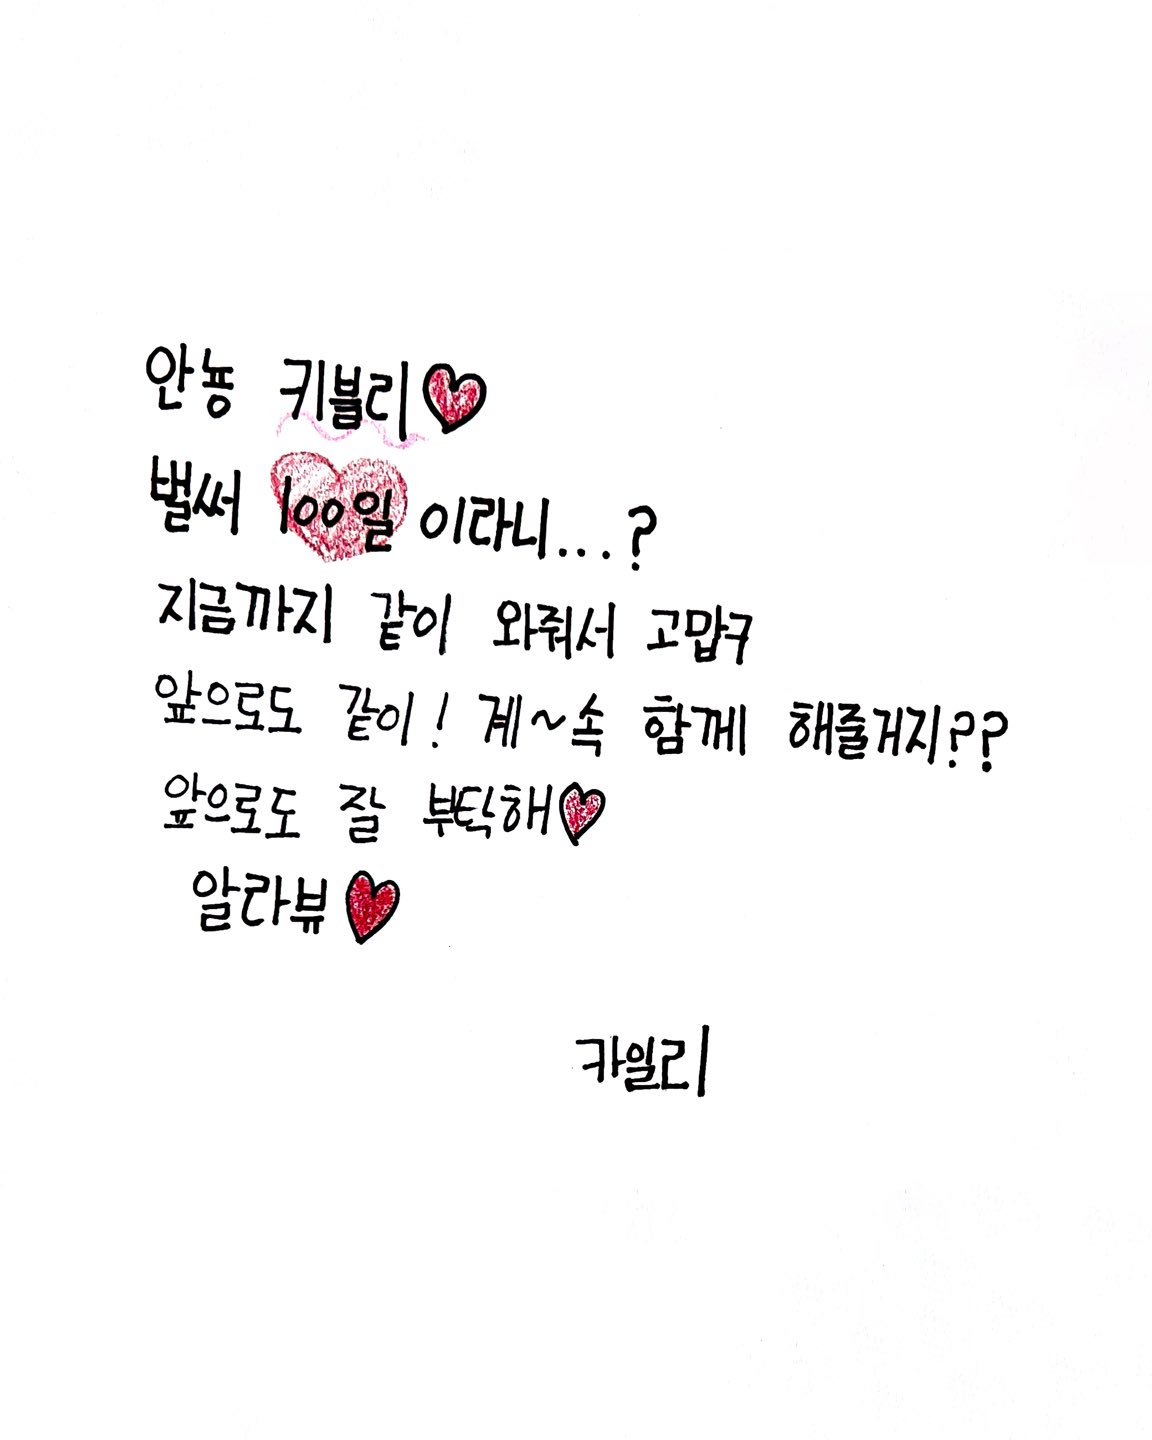 안뇽 키블리♥
벌써 100일 이라니...?
지금까지 같이 와줘서 고맙구
앞으로도 같이! 계~속 함께 해줄거지??
앞으로도 잘 부탁해♥
알라뷰♥
카일리